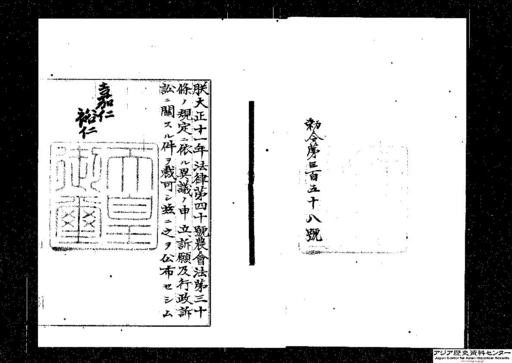 勅令第三百五十八號
朕大正十一年法律第四十號農會法第三十
條ノ規定ニ依ル異議ノ申立、訴願及行政訴
訟ニ關スル件ヲ裁可シ玆ニ之ヲ公布セシム
嘉仁
裕仁
天皇
御璽
アジア歴史資料センター
Japan Center for Asian Historical Records